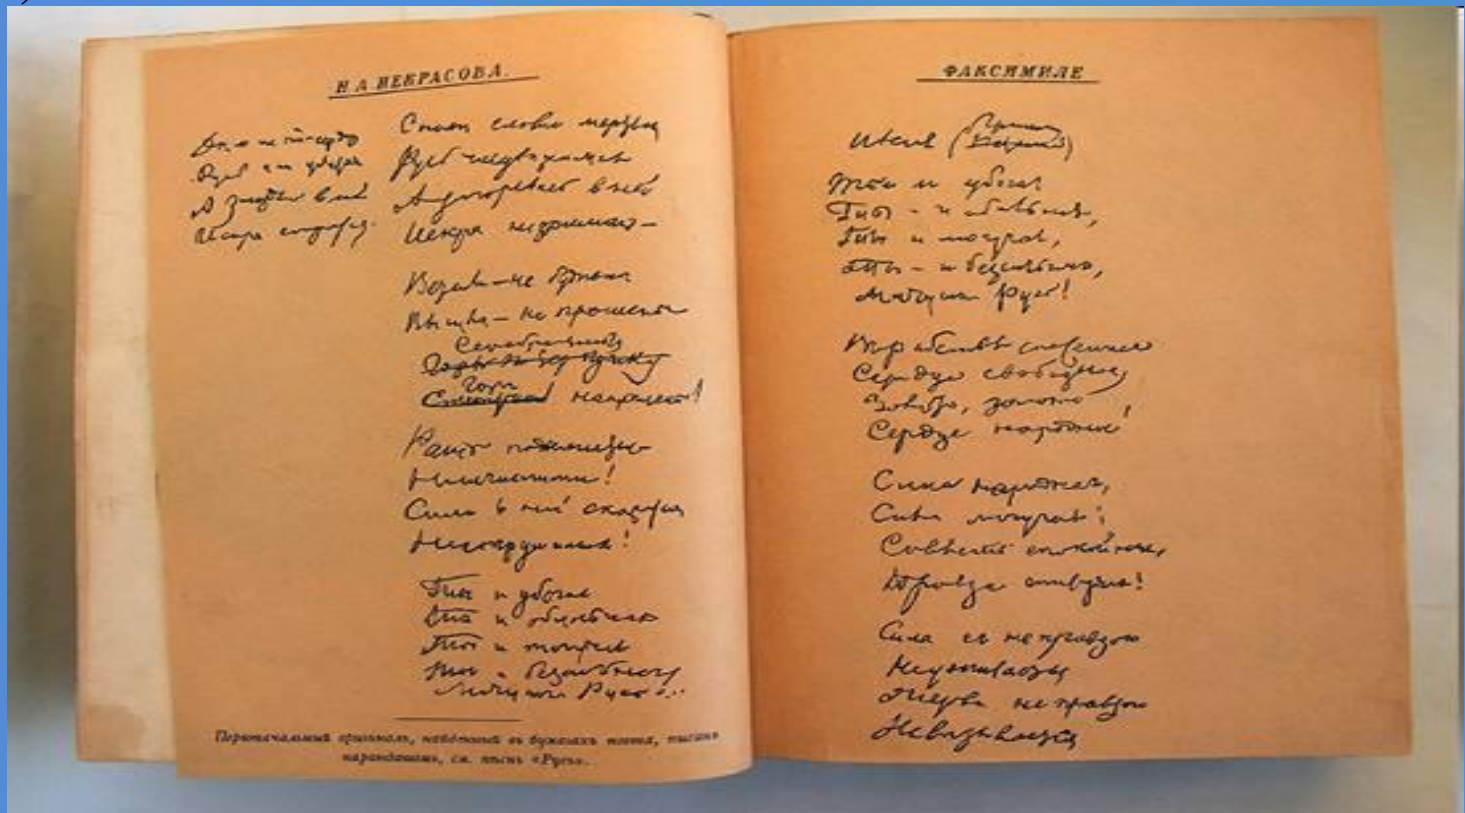 Н. А. НЕКРАСОВА.
Русь как убитая
А в ней
Искра сокрытая
словно мертвая
Русь недвижимая
А в ней
Искра незримая —
Встали — не бужены
Вышли — не прошены
Горы наношены!
Рать подымается
Неисчислимая!
Сила в ней скажется
Несокрушимая!
Ты и убогая
Ты и обильная
Ты и могучая
Ты и безсильная
Матушка Русь!..
Первоначальный оригиналъ, найденный въ бумагахъ поэта, писанъ
карандашомъ, см. пѣснь «Русь».
ФАКСИМИЛЕ
(Гриши)
Ты и убогая
Ты - и обильная,
Ты и могучая,
Ты - и безсильная,
Матушка Русь!
В рабствѣ спасенное
Сердце свободное
Золото, золото
Сердце народное!
Сила народная,
Сила могучая:
Совѣсть спокойная,
Правда живучая!
Сила съ неправдою
Неуживается
Жертва неправдою
Невызывается